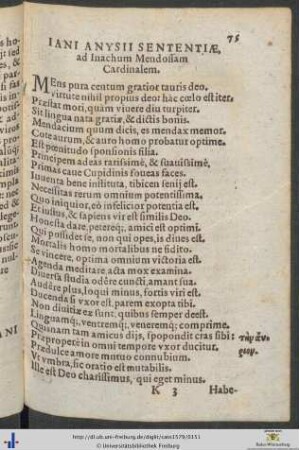 75
IANI ANYSII SENTENTIÆ,
ad Inachum Mendossam
Cardinalem.
MEns pura centum gratior tauris deo.
Virtute nihil propius deo: hac cœlo est iter.
Præstat mori, quàm viuere diu turpiter.
Sit lingua nata gratiæ, & dictis bonis.
Mendacium quum dicis, es mendax memor.
Cute aurum, & auro homo probatur optime.
Est pœnitudo sponsionis filia.
Principem adeas rarissimè, & suauissimè.
Primas caue Cupidinis foueas faces.
Iuuenta bene instituta, tibicen senij est.
Necessitas rerum omnium potentissima.
Quo iniquior, eò infelicior potentia est.
Et iustus, & sapiens vir est similis Deo.
Honesta daze, petereqú; amici est optimi.
Qui possidet se, non qui opes, is diues est.
Mortalis homo mortalibus ne fidito.
Se vincere, optima omnium victoria est.
Agenda meditare, acta mox examina.
Diuersa studia odêre cuncti, amant sua.
Audêre plus, loqui minus, fortis viri est.
Ducenda si vxor est, parem exopta tibi.
Non ditia ex sunt, quibus semper deest.
Linguamq́;, ventremq́;, veneremq́; comprime.
Quoinam tam amicus dijs, spopondit cras sibi:
Præproperè in omni tempore vxor ducitur.
Prædulce amore mutuo connubium.
Vt vmbra, sic oratio est mutabilis.
Ille est Deo charissimus, qui eget minus.
K 3 Habe-
http://dl.ub.uni-freiburg.de/diglit/cato1579/0151
© Universitätsbibliothek Freiburg